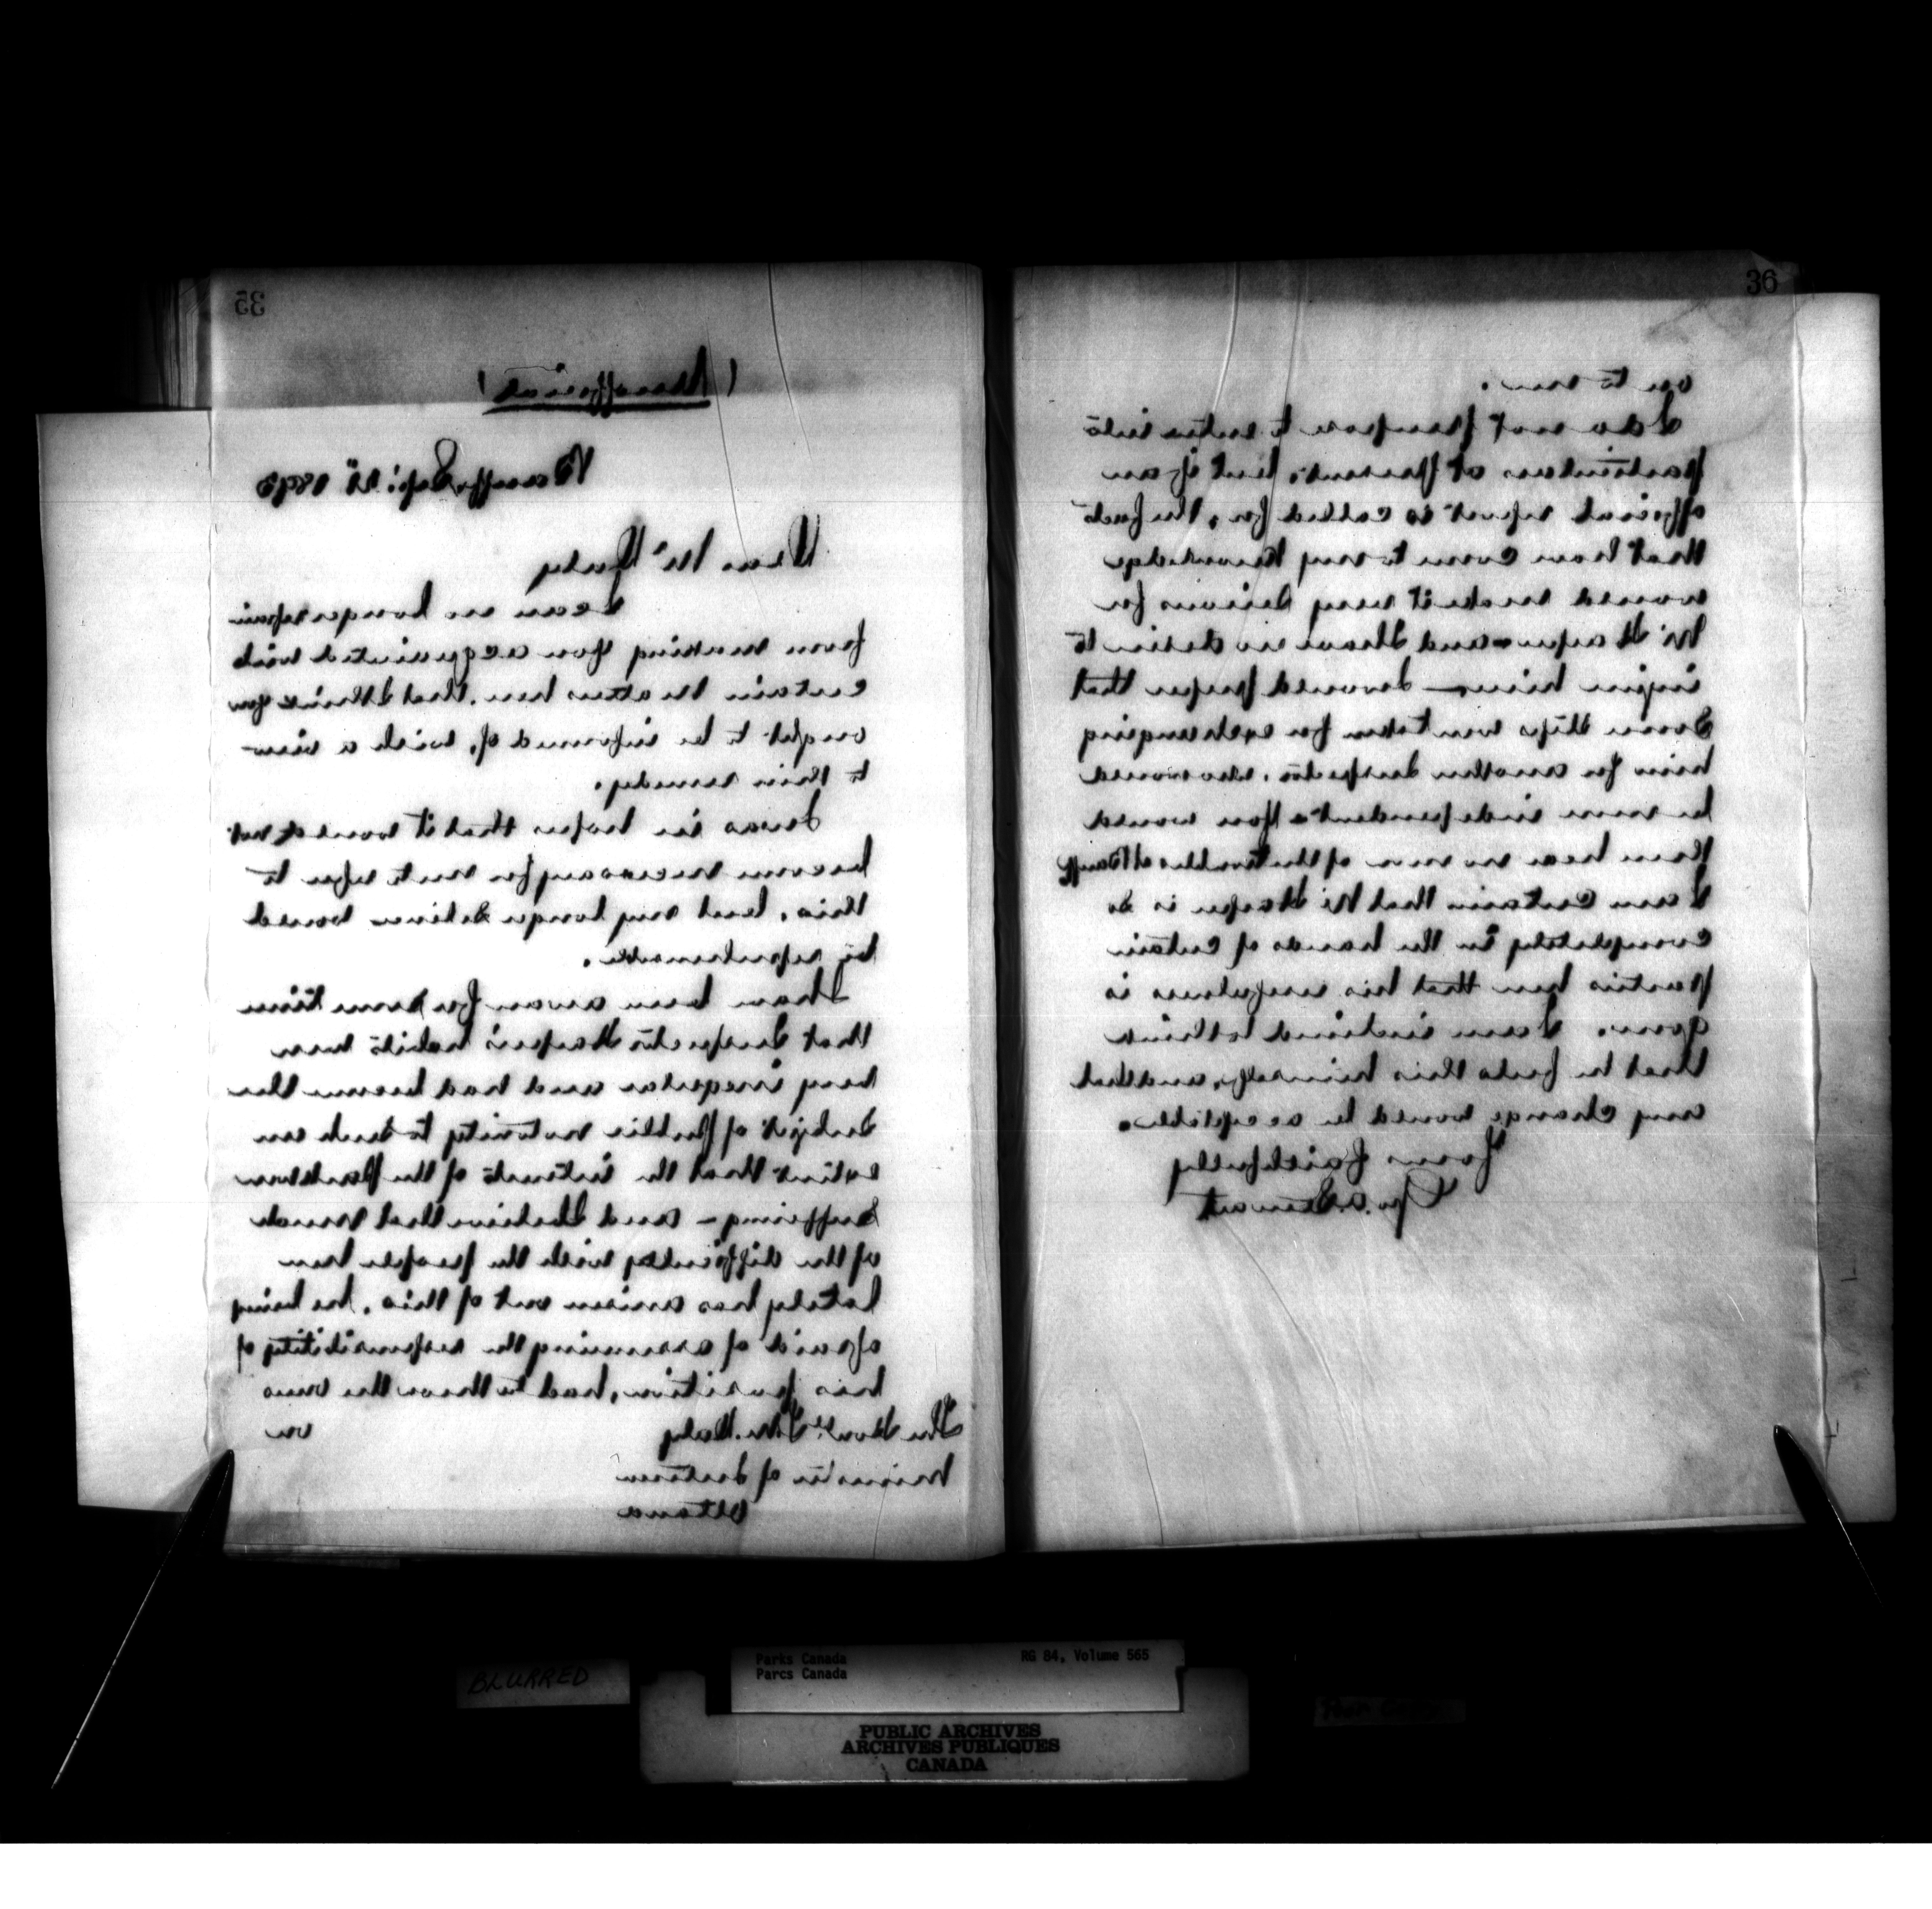 35
(Unofficial)
Banff, Sept. 1893
Dear Mr Daly
I can no longer refrain
from making you acquainted with
certain matters here, that I think you
ought to be informed of, with a view
to their remedy.
I was in hopes that it would not
become necessary for me to refer to
this, but my longer silence would
be reprehensible.
I have been aware for some time
that Inspector Harper's habits were
very irregular and had become the
subject of public notoriety to such an
extent that the interests of the Park were
suffering - and I believe that much
of the difficulty with the people here
lately has arisen out of this, he being
afraid of assuming the responsibility of
his position, had to throw the onus
on
The Honble T. M. Daly
Minister of Interior
Ottawa
36
on to me.
I do not propose to enter into
particulars at present, but if an
official report is called for, the facts
that have come to my knowledge
would make it very serious for
Mr Harper - and I have no desire to
injure him - I would prefer that
some steps were taken for exchanging
him for another Inspector, who would
be more independent & you would
then hear no more of the troubles at Banff
I am certain that Mr Harper is so
completely in the hands of certain
parties here that his usefulness is
gone. I am inclined to think
that he feels this himself, and that
any change would be acceptable.
Yours faithfully
Geo. A. Stewart
BLURRED
Parks Canada RG 84, Volume 565
Parcs Canada
PUBLIC ARCHIVES
ARCHIVES PUBLIQUES
CANADA